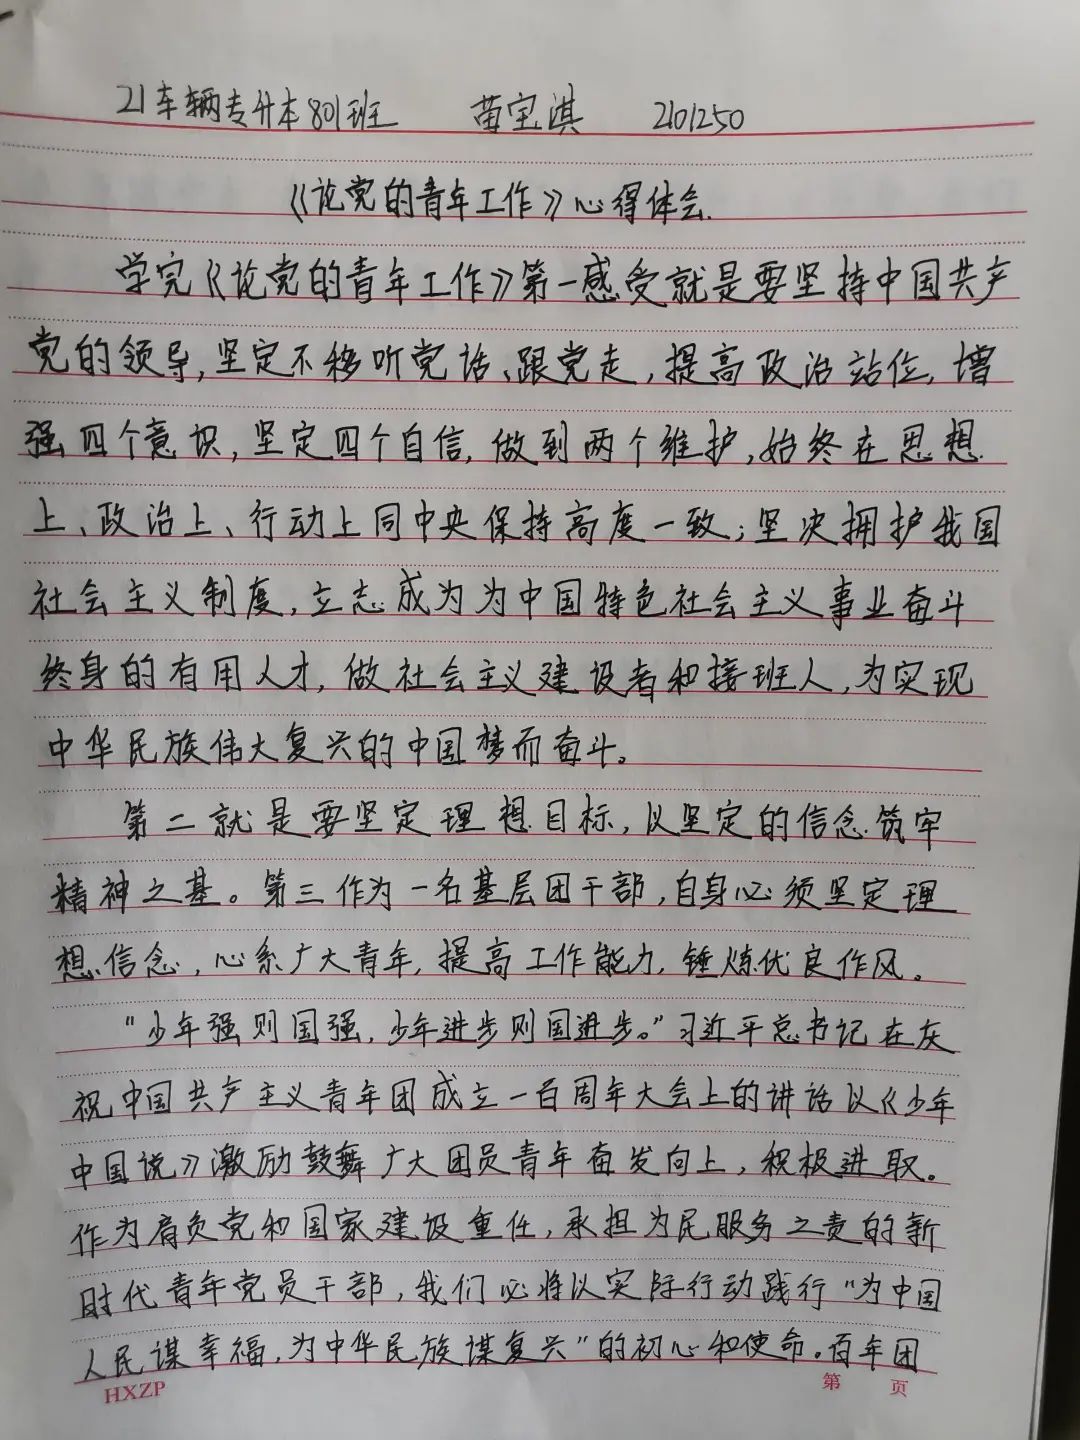 21车辆专升本801班 苗宝淇 2101250
《论党的青年工作》心得体会.
学完《论党的青年工作》第一感受就是要坚持中国共产
党的领导,坚定不移听党话、跟党走,提高政治站位,增
强四个意识,坚定四个自信,做到两个维护,始终在思想
上、政治上、行动上同中央保持高度一致;坚决拥护我国
社会主义制度,立志成为为中国特色社会主义事业奋斗
终身的有用人才,做社会主义建设者和接班人,为实现
中华民族伟大复兴的中国梦而奋斗。
第二就是要坚定理想目标,以坚定的信念筑牢
精神之基。第三作为一名基层团干部,自身必须坚定理
想信念,心系广大青年,提高工作能力,锤炼优良作风。
"少年强则国强,少年进步则国进步。"习近平总书记在庆
祝中国共产主义青年团成立一百周年大会上的讲话以《少年
中国说》激励鼓舞广大团员青年奋发向上,积极进取。
作为肩负党和国家建设重任,承担为民服务之责的新
时代青年党员干部,我们必将以实际行动践行"为中国
人民谋幸福,为中华民族谋复兴"的初心和使命。百年团
HXZP 第 页